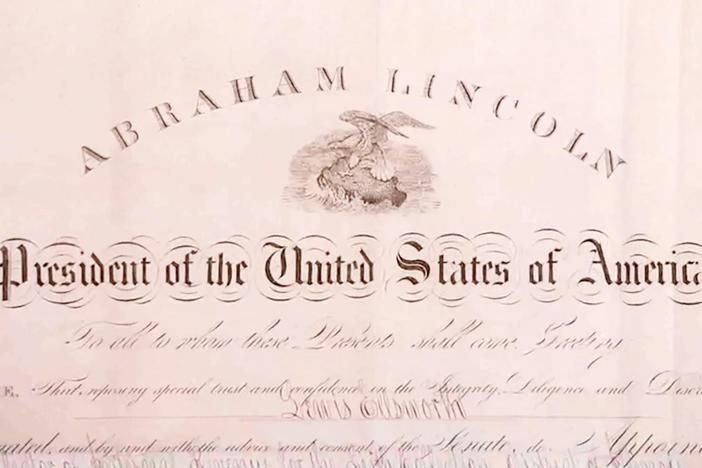 ABRAHAM LINCOLN
President of the United States of America
To all to whom these Presents shall come, Greeting
E. That reposing special trust and confidence in the Integrity, Diligence and Discr
Lewis Ellsworth
nated, and by and with the advice and consent of the Senate, do Appoin
for the